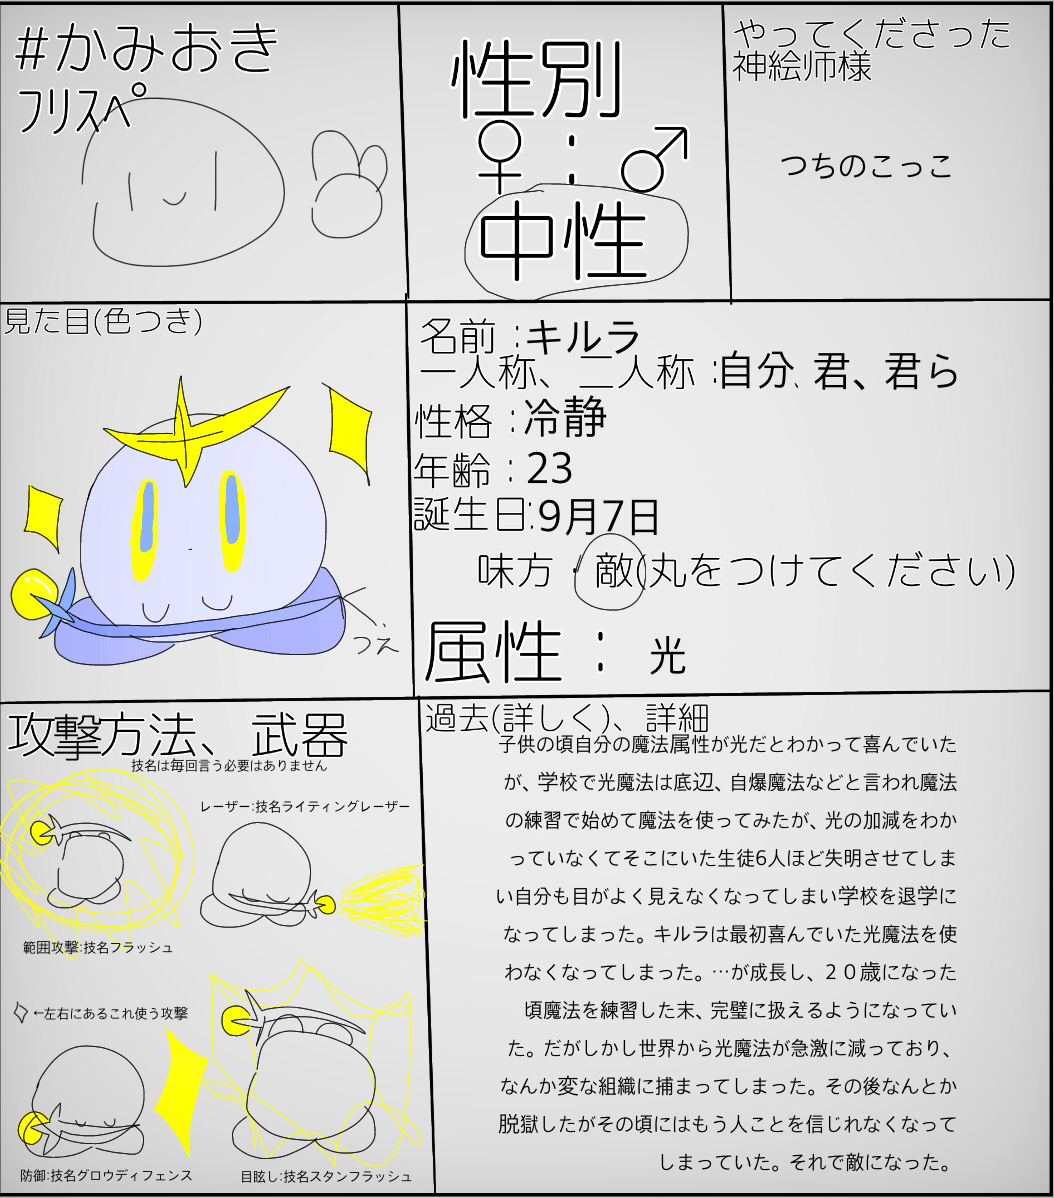 #かみおき
フリスペ
性別
♀:♂
中性
やってくださった
神絵师様
つちのこっこ
見た目(色つき)
つえ
名前:キルラ
一人称、二人称:自分、君、君ら
性格:冷静
年齢:23
誕生日:9月7日
味方・敵(丸をつけてください)
属性: 光
攻撃方法、武器
技名は毎回言う必要はありません
レーザー:技名ライティングレーザー
範囲攻撃:技名フラッシュ
←左右にあるこれ使う攻撃
防御:技名グロウディフェンス
目眩し:技名スタンフラッシュ
過去(詳しく)、詳細
子供の頃自分の魔法属性が光だとわかって喜んでいた
が、学校で光魔法は底辺、自爆魔法などと言われ魔法
の練習で始めて魔法を使ってみたが、光の加減をわか
っていなくてそこにいた生徒6人ほど失明させてしま
い自分も目がよく見えなくなってしまい学校を退学に
なってしまった。キルラは最初喜んでいた光魔法を使
わなくなってしまった。…が成長し、２０歳になった
頃魔法を練習した末、完璧に扱えるようになってい
た。だがしかし世界から光魔法が急激に減っており、
なんか変な組織に捕まってしまった。その後なんとか
脱獄したがその頃にはもう人ことを信じれなくなって
しまっていた。それで敵になった。